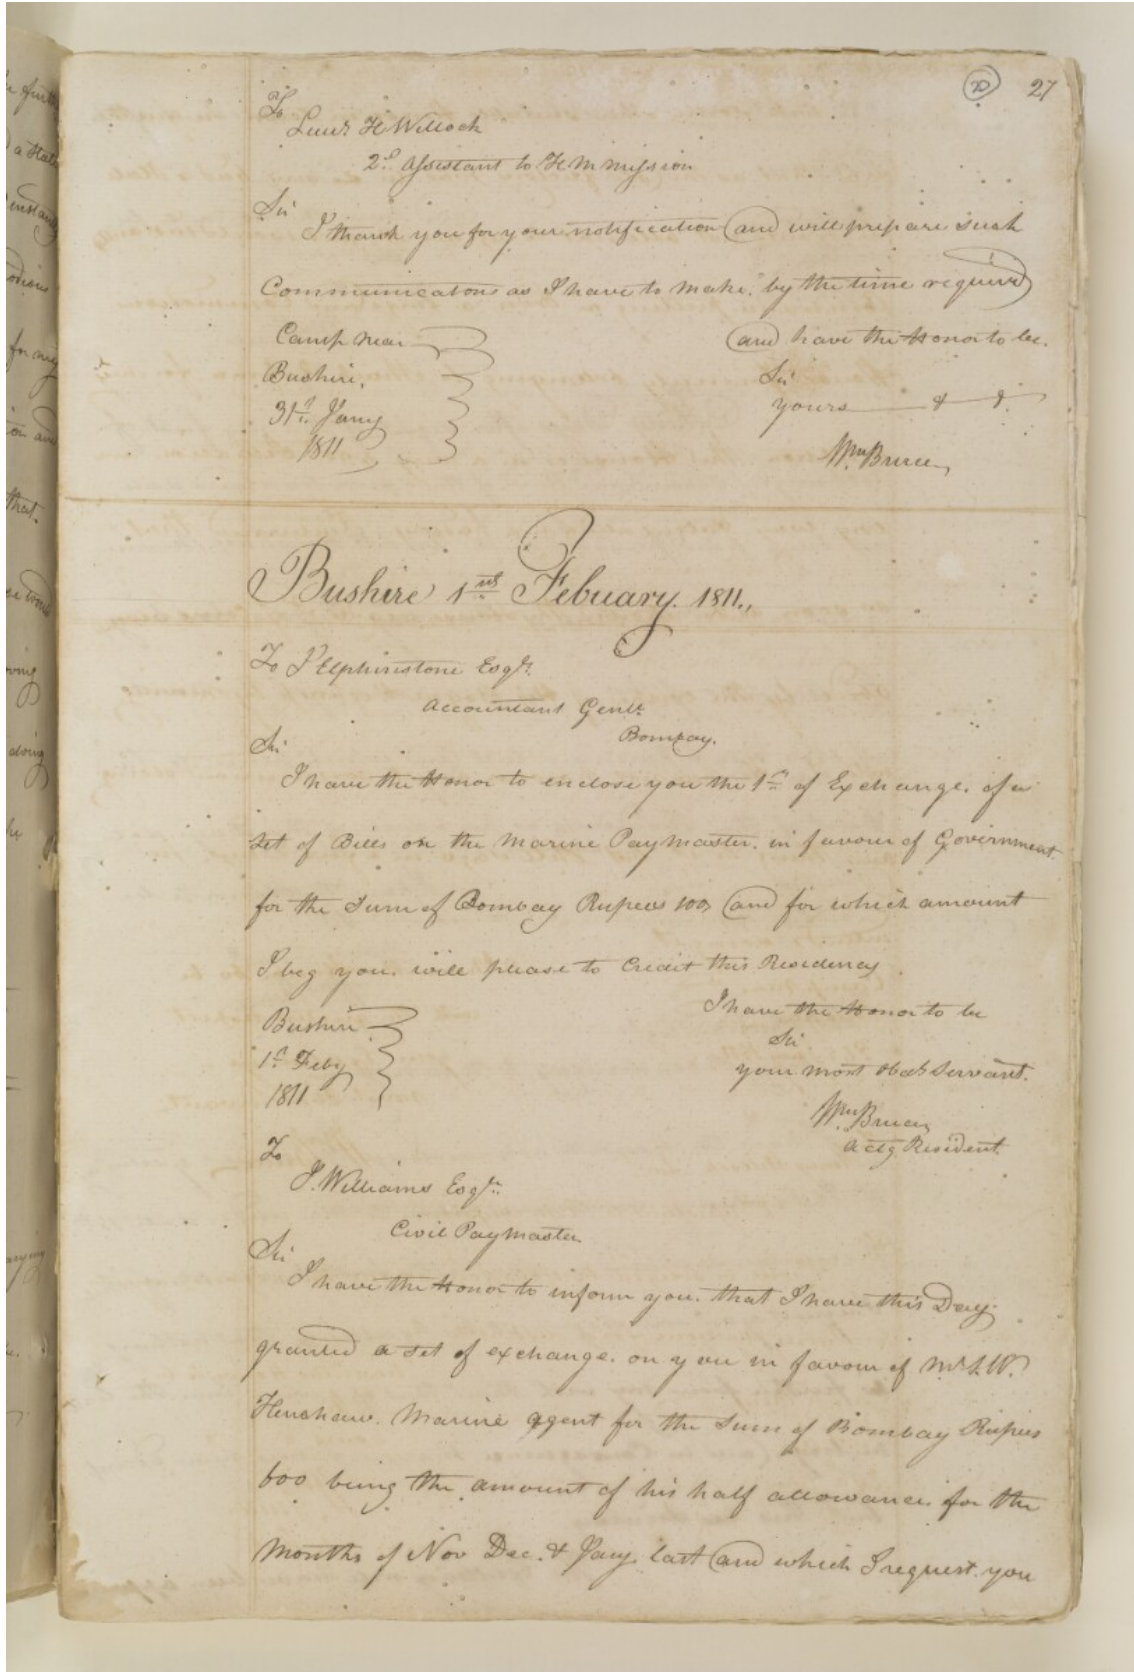 20 27
To
Lieut. H Willock
2d. Assistant to H M Mission
Sir
I thank you for your notification and will prepare such
Communications as I have to make, by the time required
Camp near
and have the Honor to be.
Bushire,
Sir
31st. Jany
yours &
1811
Wm. Bruce
Bushire 1st Febuary. 1811.,
To J Elphinstone Esqr.
Accountant Genl.
Bombay.
Sir
I have the Honor to enclose you the 1st of Exchange, of a
set of Bills on the Marine Paymaster, in favour of Government
for the Sum of Bombay Rupees and for which amount
I beg you. will please to Credit this Residency
I have the Honor to be
Bushire
Sir
1st Feby
your most Obdt Servant.
1811
Wm. Bruce
Actg Resident.
To
J. Williams Esqr.
Civil Paymaster
Sir
I have the Honor to inform you. that I have this Day
granted a set of exchange. on you in favour of Mr. S. W.
Henshaw. Marine agent for the Sum of Bombay Rupees
600 being the amount of his half allowance for the
Months of Nov Dec. & Jany. last and which I request. you